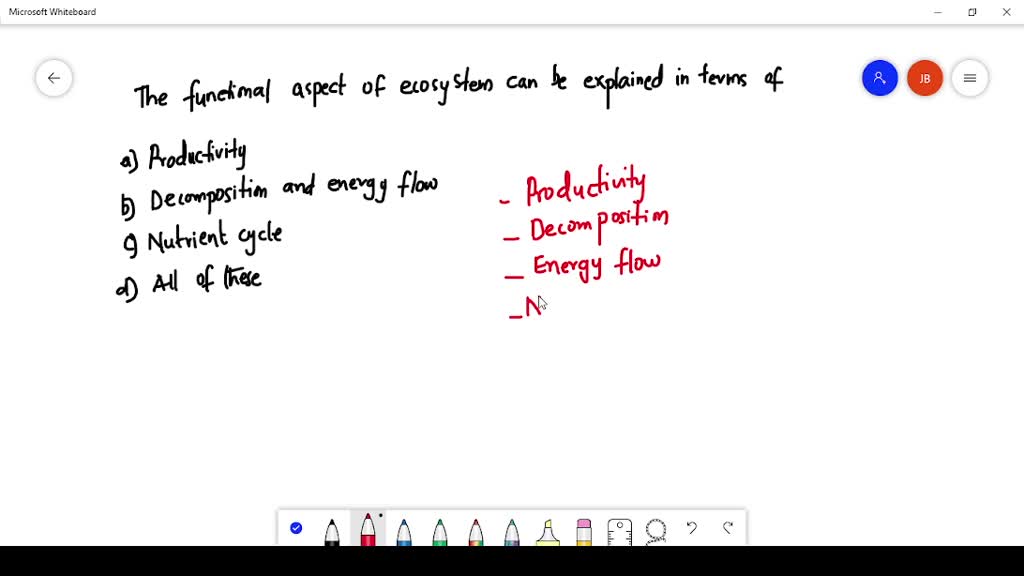 Microsoft Whiteboard
JB
The functional aspect of ecosystem can be explained in terms of
a) Productivity
b) Decomposition and energy flow
c) Nutrient cycle
d) All of these
- Productivity
- Decomposition
- Energy flow
- N